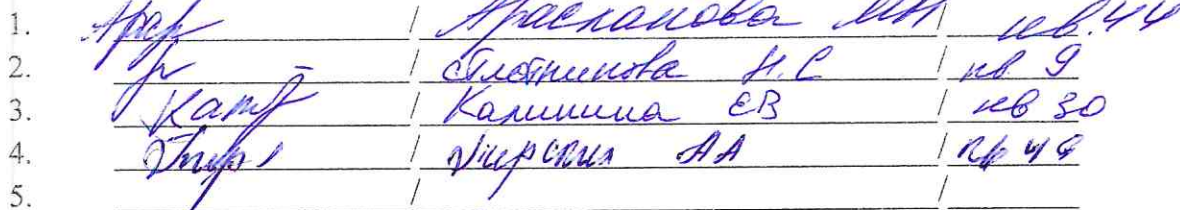 1. / Арасханова МН / кв. 44
2. / Плотникова Н.С / кв 9
3. / Калинина ЕВ / кв 30
4. / АА / кв
5. / /